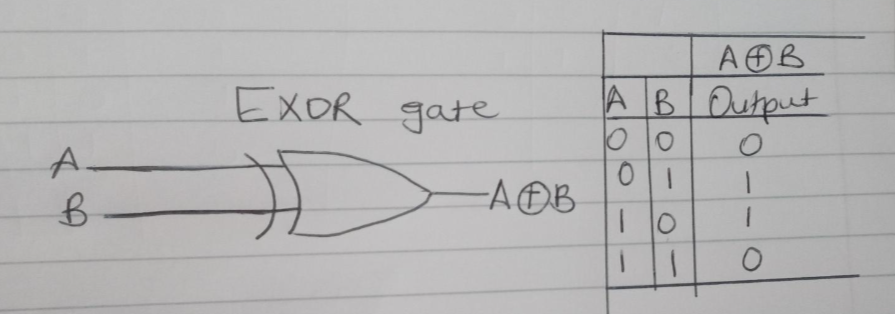 EXOR gate
A
B
A⊕B
A⊕B
A B Output
0 0 0
0 1 1
1 0 1
1 1 0